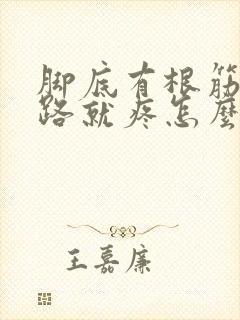 脚底有根筋
路就疼怎麼
王嘉廉